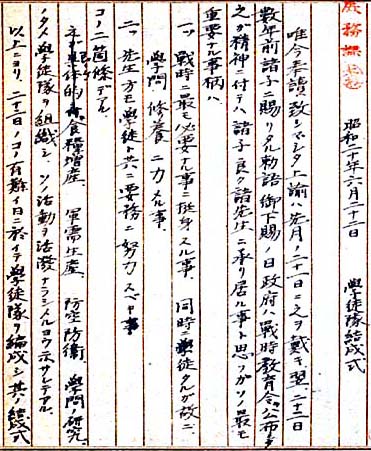 庶務課
昭和二十年六月二十二日 學徒隊結成式
唯今奉讀致シマシタ上諭ハ先月二十一日ニ之ヲ戴キ翌二十二日
数年前諸子ニ賜リタル勅語御下賜ノ日政府ハ戦時教育令ヲ公布
之ガ精神ニ付テハ諸子良ク諸先生ニ承リ居ル事ト思フガソノ最モ
重要ナル事柄ハ
一ツ 戦時ニ最モ必要ナル事ニ挺身スル事、同時ニ學徒タルガ故ニ
學問ノ修養ニ力メル事
二ツ 先生方モ學徒ト共ニ要務ニ努力スベキ事
コノ二箇條デアル
具体的ニ食糧増産 軍需生産 防空防衛 學問ノ研究
ノタメ學徒隊ヲ組織シ ソノ活動ヲ活潑ナラシメルヨウ示サレテアル
以上ニヨリ二十二日ノコノ有難イ日ニ於イテ學徒隊ヲ編成シ其ノ結成式